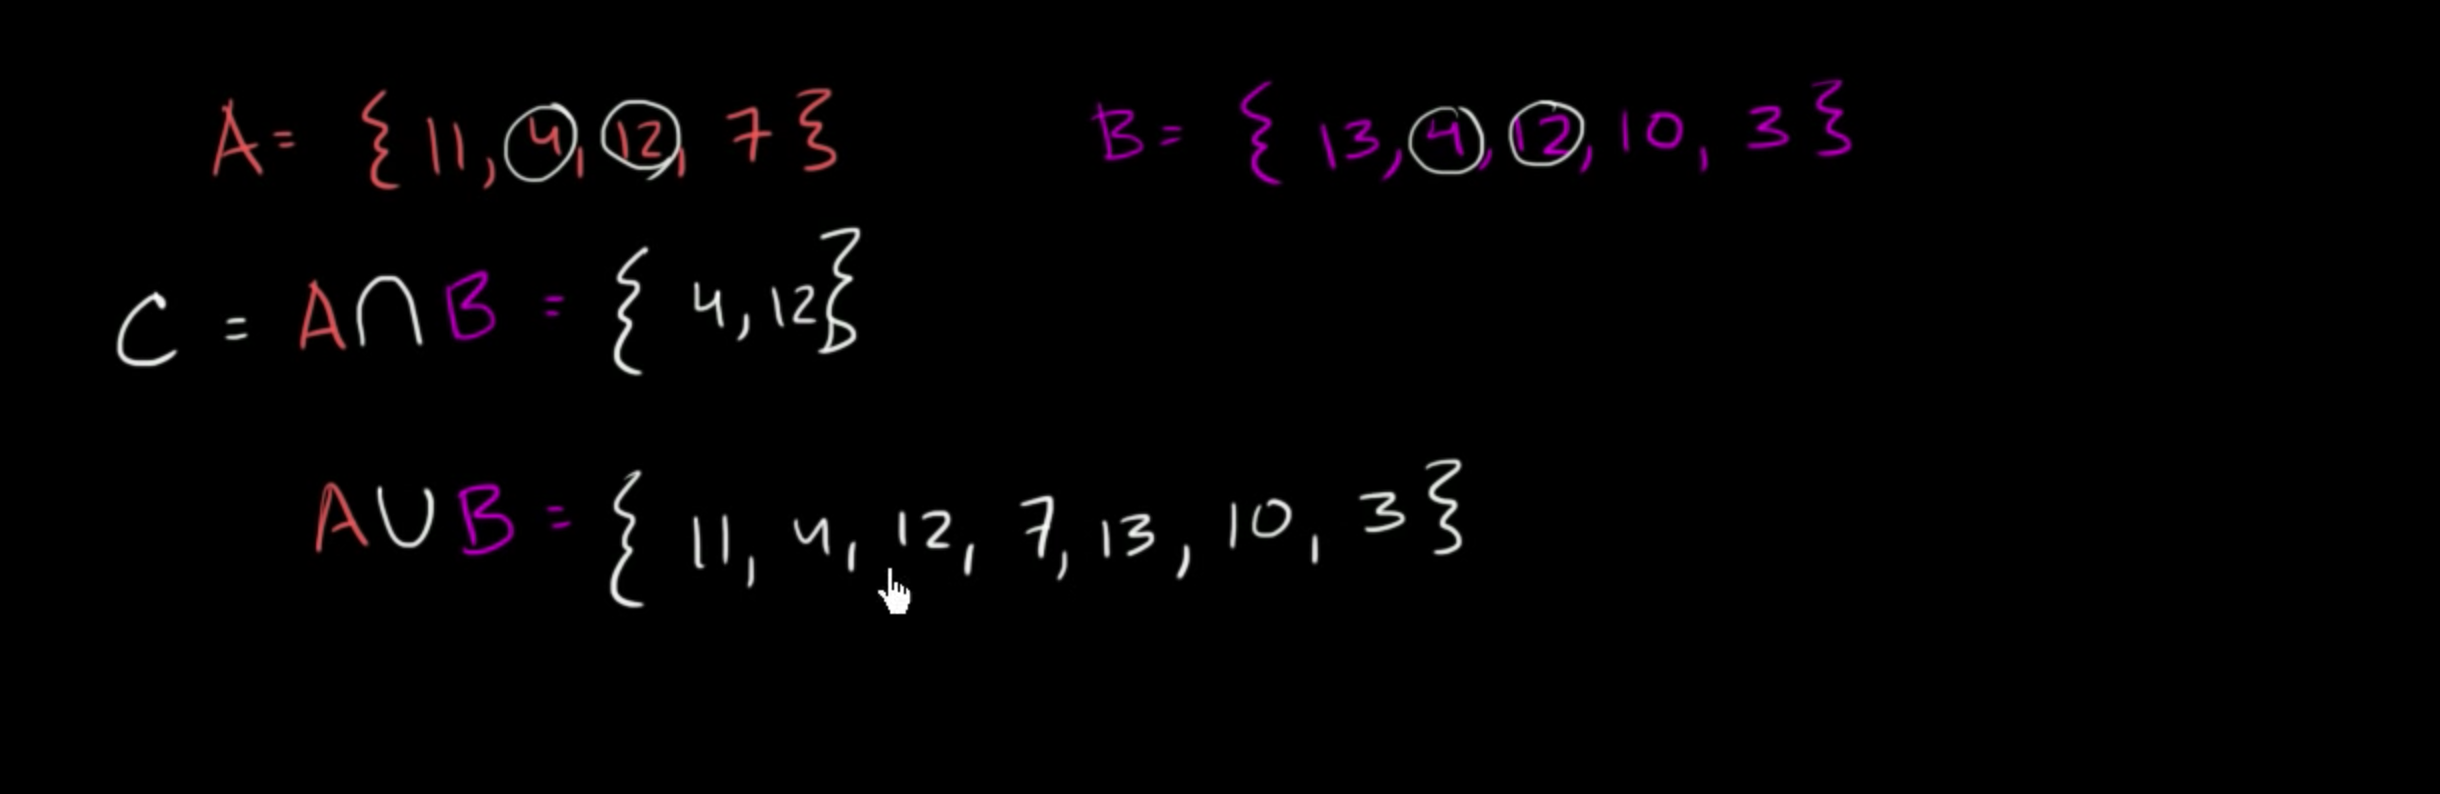 A = { 11, 4, 12, 7 } B = { 13, 4, 12, 10, 3 }
C = A ∩ B = { 4, 12 }
A ∪ B = { 11, 4, 12, 7, 13, 10, 3 }